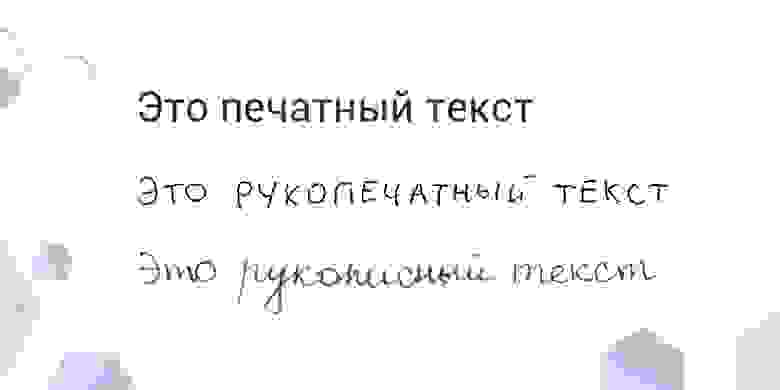 Это печатный текст
ЭТО РУКОПЕЧАТНЫЙ ТЕКСТ
Это рукописный текст